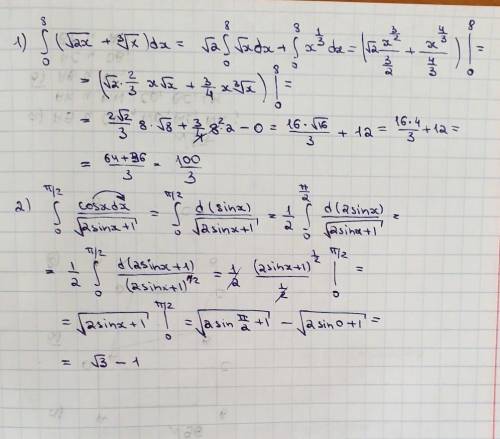 1) ∫₀⁸ (√2x + ∛x) dx = √2 ∫₀⁸ √x dx + ∫₀⁸ x^(1/3) dx = (√2 x^(3/2)/(3/2) + x^(4/3)/(4/3)) |₀⁸ =
= (√2 · 2/3 x√x + 3/4 x ∛x) |₀⁸ =
= 2√2/3 8 · √8 + 3/4 8² · 2 − 0 = 16 · √16/3 + 12 = 16 · 4/3 + 12 =
= 64 + 36/3 = 100/3
2) ∫₀^(π/2) cosx dx/√(2sinx+1) = ∫₀^(π/2) d(sinx)/√(2sinx+1) = 1/2 ∫₀^(π/2) d(2sinx)/√(2sinx+1) =
= 1/2 ∫₀^(π/2) d(2sinx+1)/(2sinx+1)^(1/2) = 1/2 (2sinx+1)^(1/2)/(1/2) |₀^(π/2) =
= √(2sinx+1) |₀^(π/2) = √(2sin π/2 + 1) − √(2sin0+1) =
= √3 − 1